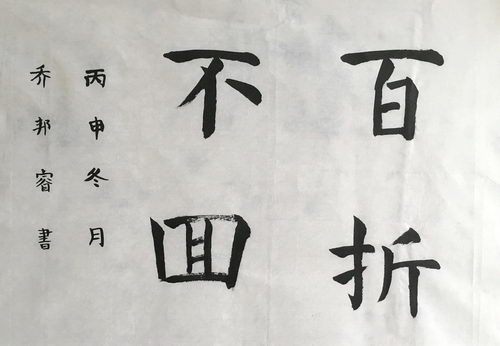 百折
不囬
丙申冬月
乔邦睿書